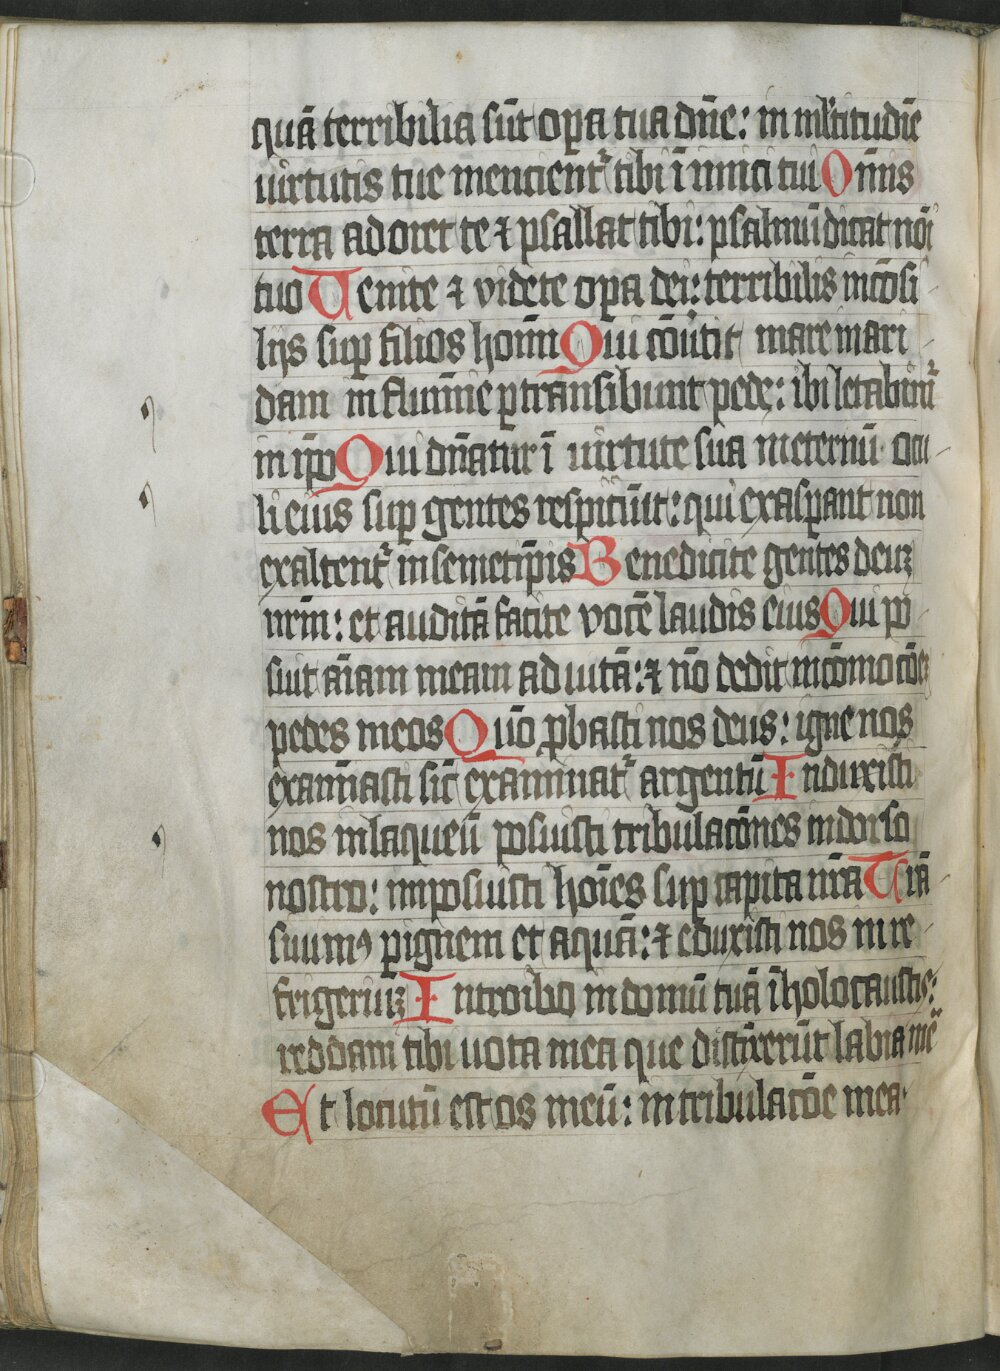 quā terribilia sūt opa tua dn̄e: in ml'titudīe
uirtutis tue mencient᷑ tibi īnimici tui Om̄is
terra adoret te ⁊ psallat tibi: psalmū dicat nōi
tuo Uenite ⁊ videte opa dei: terribilis in cōsi
lijs sup filios hoīm Qui cōu'tit mare in ari
dam in flumīe ptransibunt pede: ibi letabim᷑
in ip̄o Qui dn̄atur ī uirtute sua in eternū ocu
li eius sup gentes respiciūt: qui exaspant non
exaltent᷑ in semetip̄is Benedicite gentes deuꝫ
nrm̄: et auditā facite vocē laudis eius Qui po
suit aīam meam ad uitā: ⁊ nō dedit in cōmocōeꝫ
pedes meos Qm̄ pbasti nos deus: igne nos
examīasti sic̄ examinat᷑ argentū Induxisti
nos in laqueū posuisti tribulacōnes in dorso
nostro: imposuisti hoīes sup capita nrā Trā
siuimꝰ p ignem et aquā: ⁊ eduxisti nos in re
frigeriuꝫ Introibo in domū tuā ī holocaustis:
reddam tibi uota mea que distīxerūt labia mē
Et locutū est os meū: in tribulacōe mea